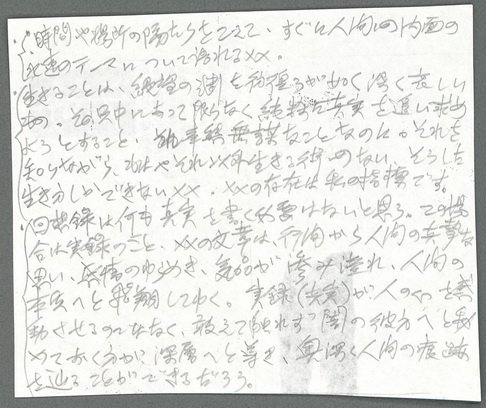 時間や場所の隔たりをこえて、すぐに人間の内面の
永遠のテーマについて語れる××。
生きることは、絶望の淵を彷徨うが如く深く哀しい
もの。その只中にあって限りなく純粋に真実を追い求め
ようとすること、無謀なことなのに。それを
知りながら、もはやそれ以外生きる術のない、そうした
生き方しかできない××。××の存在は私の指標です。
回想録は何も真実を書く必要はないと思う。この場
合は実録のこと、××の文章は、行間から人間の真摯な
思い、感情のゆらめき、気品が滲み溢れ、人間の
真実へと飛翔してゆく。実録(事実)が人の心を感
動させるのではなく、敢えて触れず「闇」の彼方へと秘
めておく方が深層へと導き、奥深く人間の痕跡
を辿ることができるだろう。